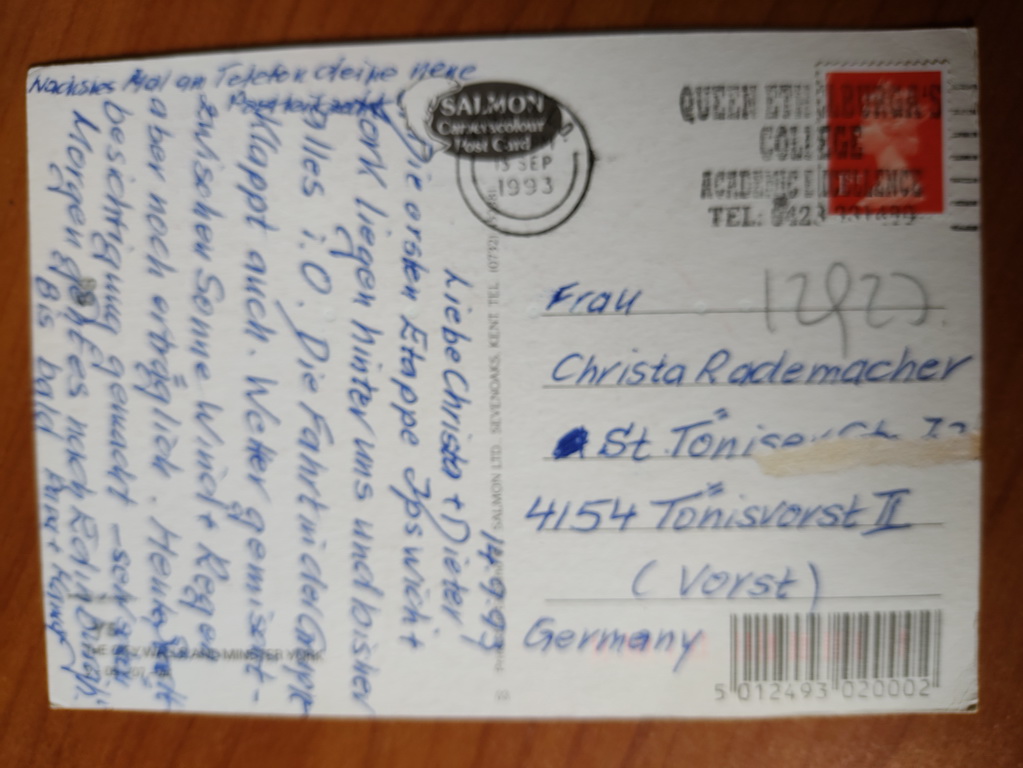 Nächstes Mal am Telefon deine neue
SALMON
Cameracolour
Post Card
13 SEP
1993
QUEEN ETHELBURGA'S
COLLEGE
ACADEMIC EXCELLENCE
TEL: 0423
14.9.93
Liebe Christa + Dieter
Die ersten Etappe Ipswich +
York liegen hinter uns und bisher
alles i.O. Die Fahrt in der Gruppe
klappt auch. Wetter gemischt -
zwischen Sonne Wind + Regen
aber noch erträglich. Heute Stadt
besichtigung gemacht - sehr
Morgen geht es nach Edinburgh.
Bis bald
SALMON LTD. SEVENOAKS, KENT. TEL.
THE CITY WALLS AND MINSTER YORK
Frau
Christa Rademacher
St. Töniser
4154 Tönisvorst II
(Vorst)
Germany
5 012493 020002